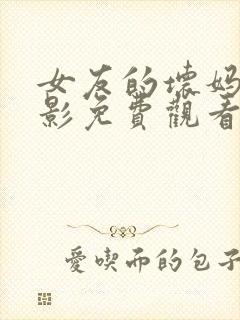 女友的坏妈
影免費觀看
愛喫而的包子